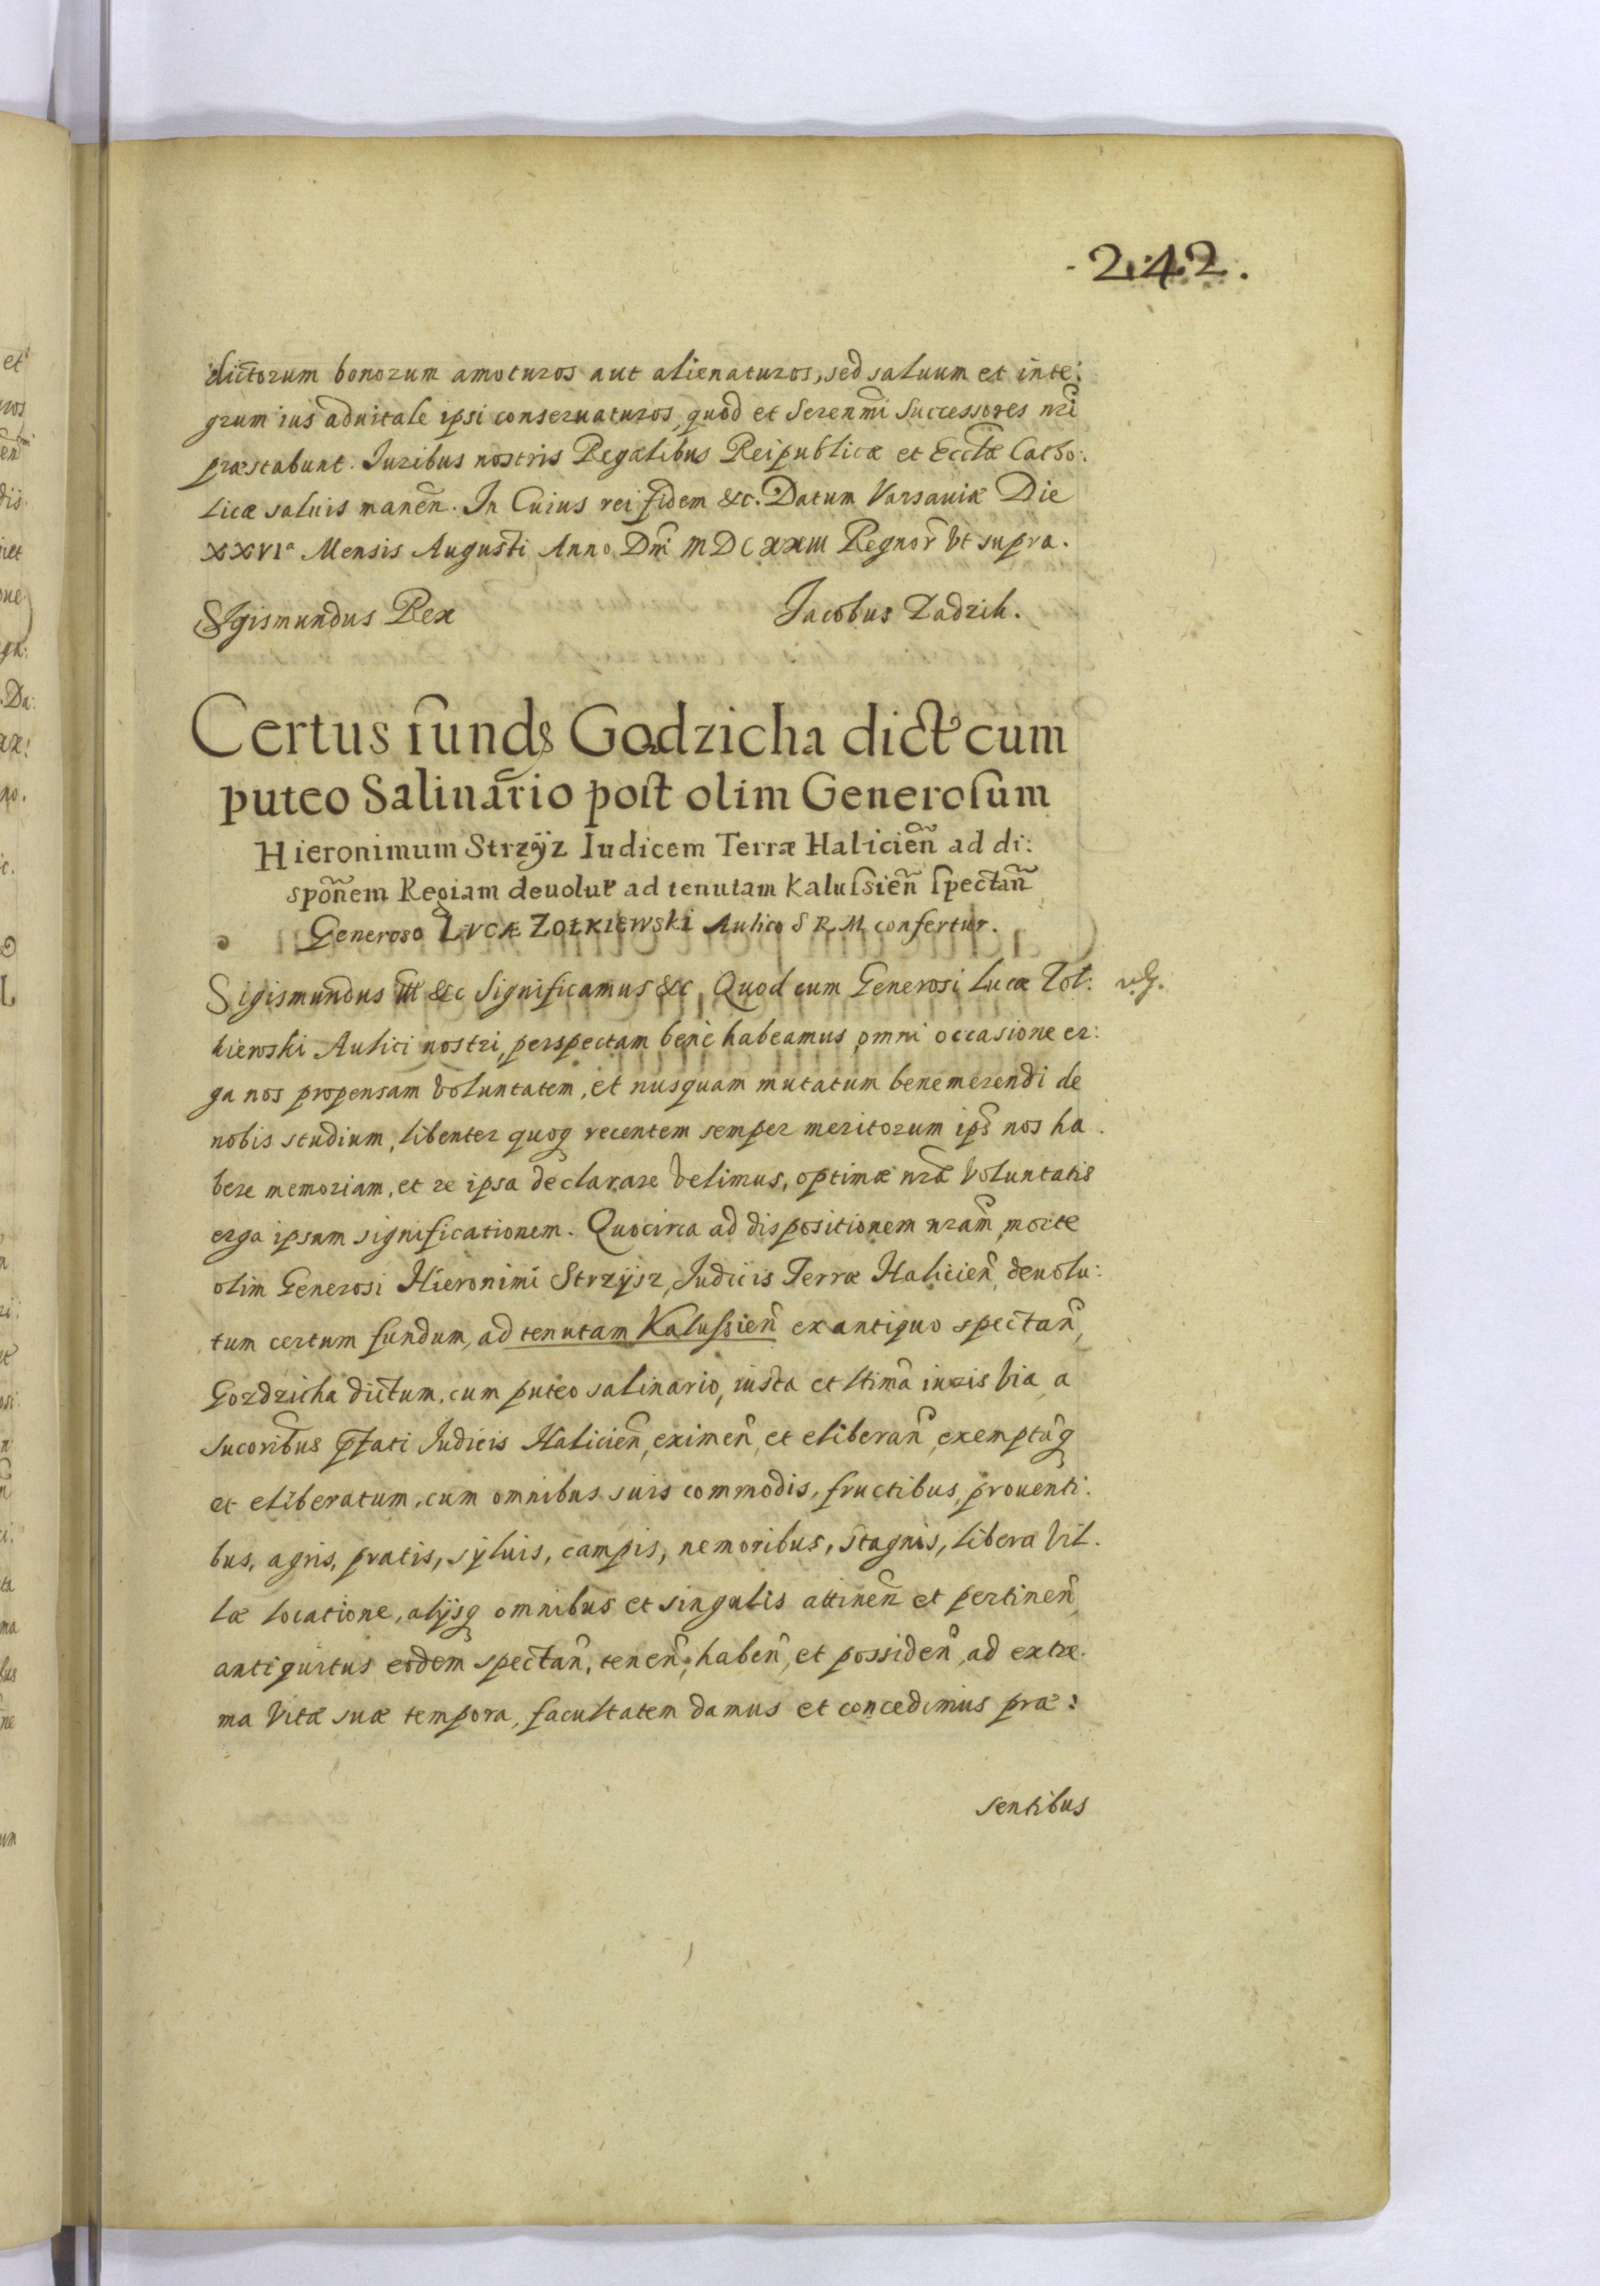 242.
dictorum bonorum amoturos aut alienaturos, sed saluum et inte:
grum ius aduitale ipsi conseruaturos, quod et Serenmi Successores nri
præstabunt. Iuribus nostris Regalibus Reipublicæ et Ecctæ Catho:
licæ saluis manen. In Cuius rei fidem &c. Datum Varsauiæ Die
XXVIa Mensis Augusti Anno Dni MDCXXIII Regnor Vt supra.
Sigismundus Rex Jacobus Zadzik.
Certus funds Godzicha dict cum
puteo Salinario post olim Generosum
Hieronimum Strzyz Iudicem Terræ Halicien ad di:
sponem Regiam deuolut ad tenutam Kalussien spectan
Generoso LVCÆ ZOŁKIEWSKI Aulico S R M confertur.
Sigismundus III &c Significamus &c, Quod cum Generosi Lucæ Zoł:
kiewski Aulici nostri, perspectam bene habeamus omni occasione er:
ga nos propensam Voluntatem, et nusquam mutatum benemerendi de
nobis studium, libenter quoq recentem semper meritorum ips nos ha.
bere memoriam, et re ipsa declarare Velimus, optimæ nræ Voluntatis
erga ipsum significationem. Quocirca ad dispositionem nram, morte
olim Generosi Hieronimi Strzysz, Iudicis Terræ Halicien, deuolu:
tum certum fundum, ad tenutam Kalussien ex antiquo spectan,
Gozdzicha dictum, cum puteo salinario, iusta et ltima iuris Via a
sucoribus pfati Iudicis Halicien, eximen et eliberan, exemptuq
et eliberatum, cum omnibus suis commodis, fructibus, prouenti.
bus, agris, pratis, syluis, campis, nemoribus, stagnis, libera Vil.
læ locatione, alijsq omnibus et singulis attinen et pertinen,
antiquitus eodem spectan, tenen, haben, et possiden, ad extre.
ma Vitæ suæ tempora, facultatem damus et concedimus præ:
sentibus